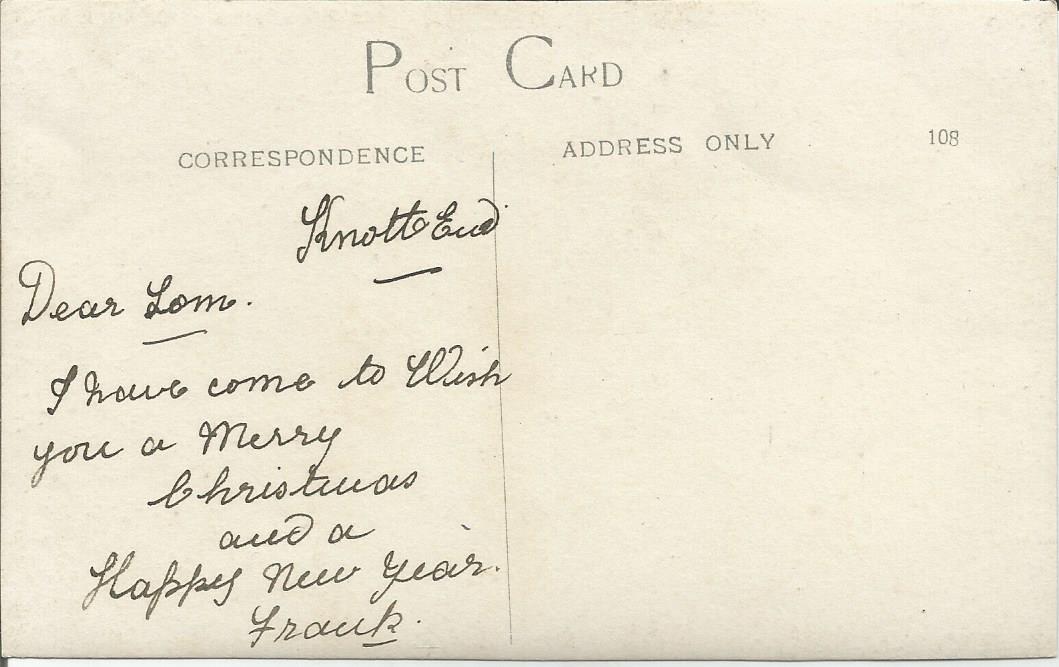 POST CARD
CORRESPONDENCE
ADDRESS ONLY
108
Knott End
Dear Tom.
I have come to Wish
you a Merry
Christmas
and a
Happy New Year.
Frank.